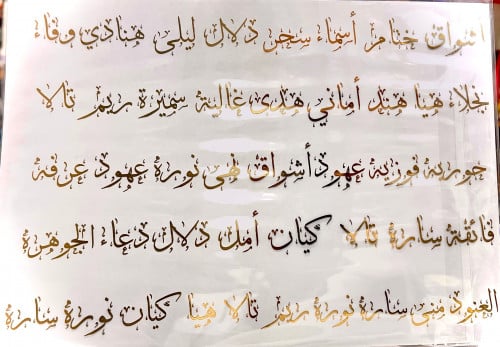 اشواق ختام أسماء سحر دلال ليلى هنادي وفاء
نجلاء هيا هند أماني هدى غالية سميرة ريم تالا
جورية فوزية عهود أشواق نهى نورة عهود عرفه
فائقة سارة تالا كيان أمل دلال دعاء الجوهرة
العنود منى سارة نورة ريم تالا هيا كيان نورة سارة